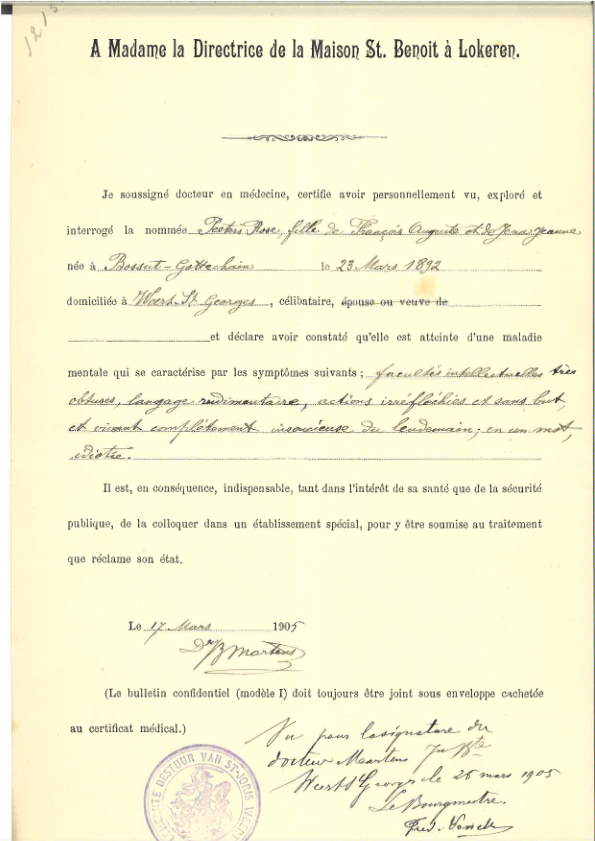 1215
A Madame la Directrice de la Maison St. Benoit à Lokeren.
Je soussigné docteur en médecine, certifie avoir personnellement vu, exploré et
interrogé la nommée Peeters Rose, fille de François Auguste et de Jeanne
née à Bossut-Gottechain le 23 Mars 1892
domiciliée à Weert-St Georges, célibataire, épouse ou veuve de
et déclare avoir constaté qu'elle est atteinte d'une maladie
mentale qui se caractérise par les symptômes suivants ; facultés intellectuelles très
obtuses, langage rudimentaire, actions irréfléchies et sans but,
et vivant complètement insoucieuse du lendemain; en un mot,
idiotie.
Il est, en conséquence, indispensable, tant dans l'intérêt de sa santé que de la sécurité
publique, de la colloquer dans un établissement spécial, pour y être soumise au traitement
que réclame son état.
Le 17 Mars 1905
Dr Martens
(Le bulletin confidentiel (modèle I) doit toujours être joint sous enveloppe cachetée
au certificat médical.)
Vu pour la signature du
docteur Maertens
Weert St Georges le 26 mars 1905
Le Bourgmestre.
Fred. Vonck
BESTUUR VAN ST-JORIS WEERT